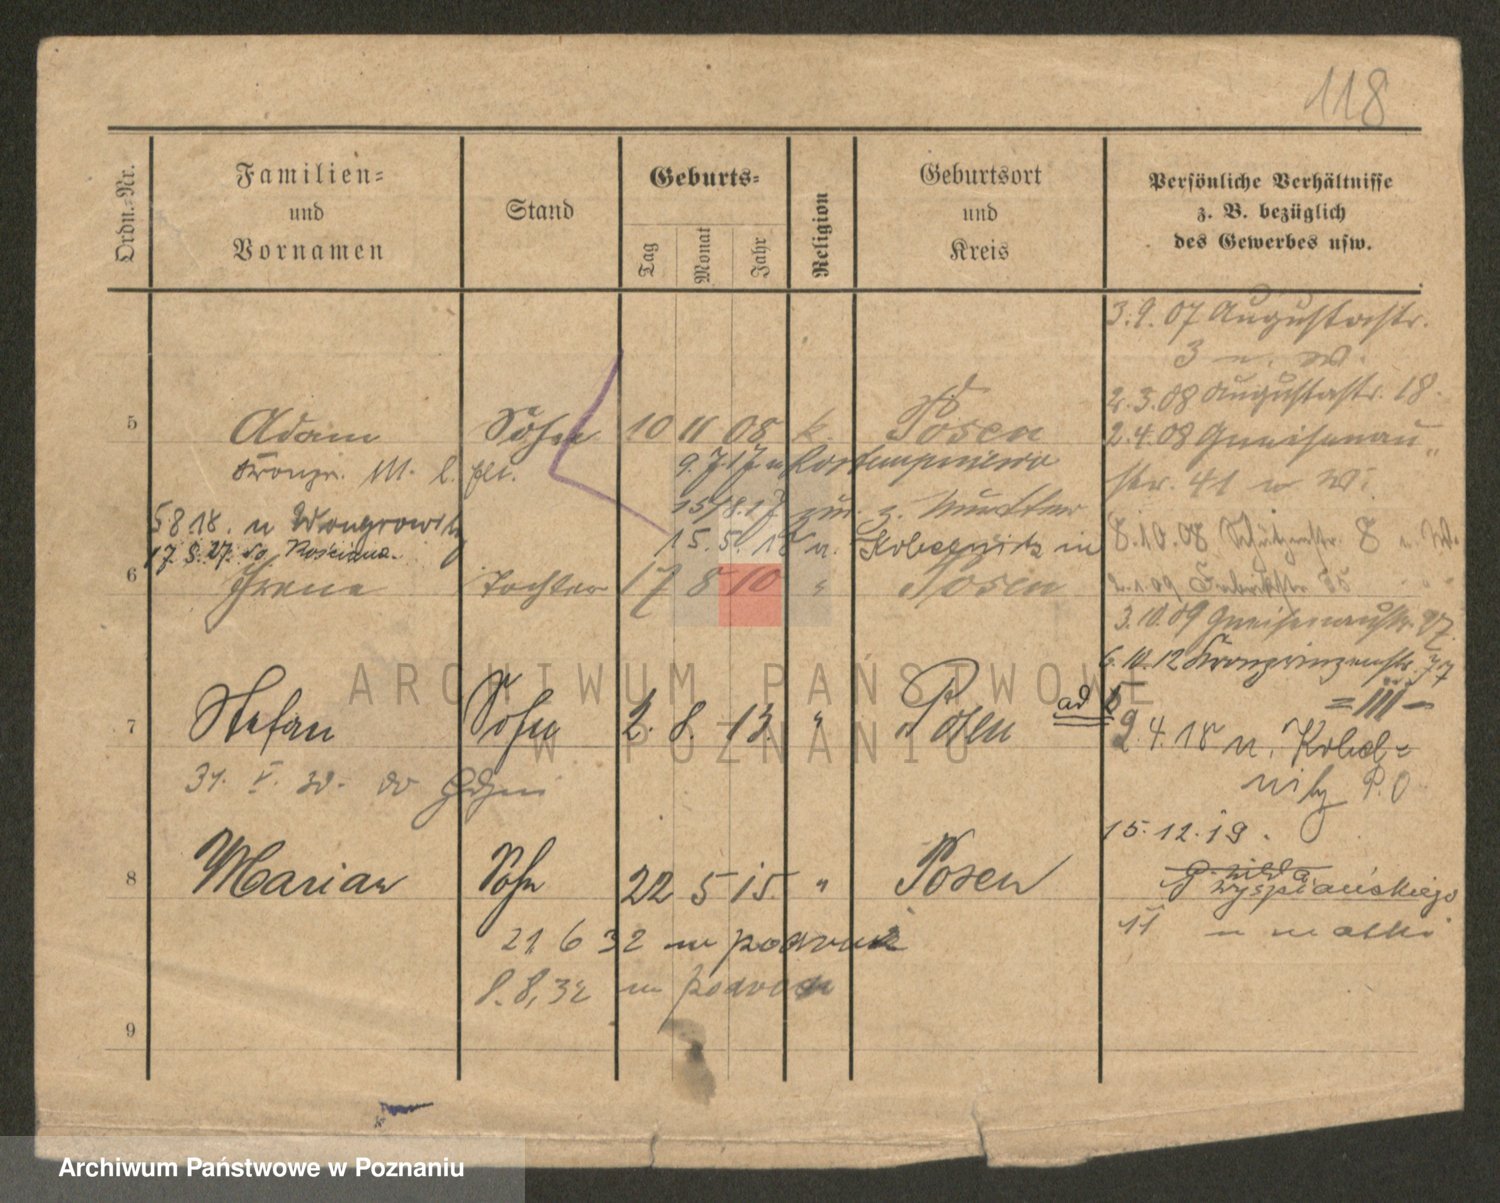 118
Ordn.-Nr.
Familien-
und
Vornamen
Stand
Geburts-
Tag
Monat
Jahr
Religion
Geburtsort
und
Kreis
Persönliche Verhältnisse
z. B. bezüglich
des Gewerbes usw.
3.9.07 Augustastr.
3 n. W.
2.3.08 Augustastr. 18.
5 Adam Sohn 10 11 08 k. Posen
2.4.08 Gneisenau
str. 41 n W.
Kronpr. III. l.
9.7.17 n
15/8.17 zur. z. Mutter
5 8 18. n Wongrowitz
15.5.18 n. Kobelnitz in
8.10.08 Schützenstr. 8 n. W.
17.8.27. do
6 Irene Tochter 17 8 10 " Posen
2.1.09 Fabrikstr
3.10.09 Gneisenaustr.
6.10.12 Kronprinzenstr. 77
= III -
7 Stefan Sohn 2. 8. 13. " Posen
ad 5
9.4.18 n. Kobel=
nitz P.O
31. V. 32. do Gdyni
15.12.19.
8 Marian Sohn 22 5 15. " Posen
G. Wilda
Wyspiańskiego
11 u matki
21 6 32 m podróż
8.8.32 m podróż
9
ARCHIWUM PAŃSTWOWE
W POZNANIU
Archiwum Państwowe w Poznaniu